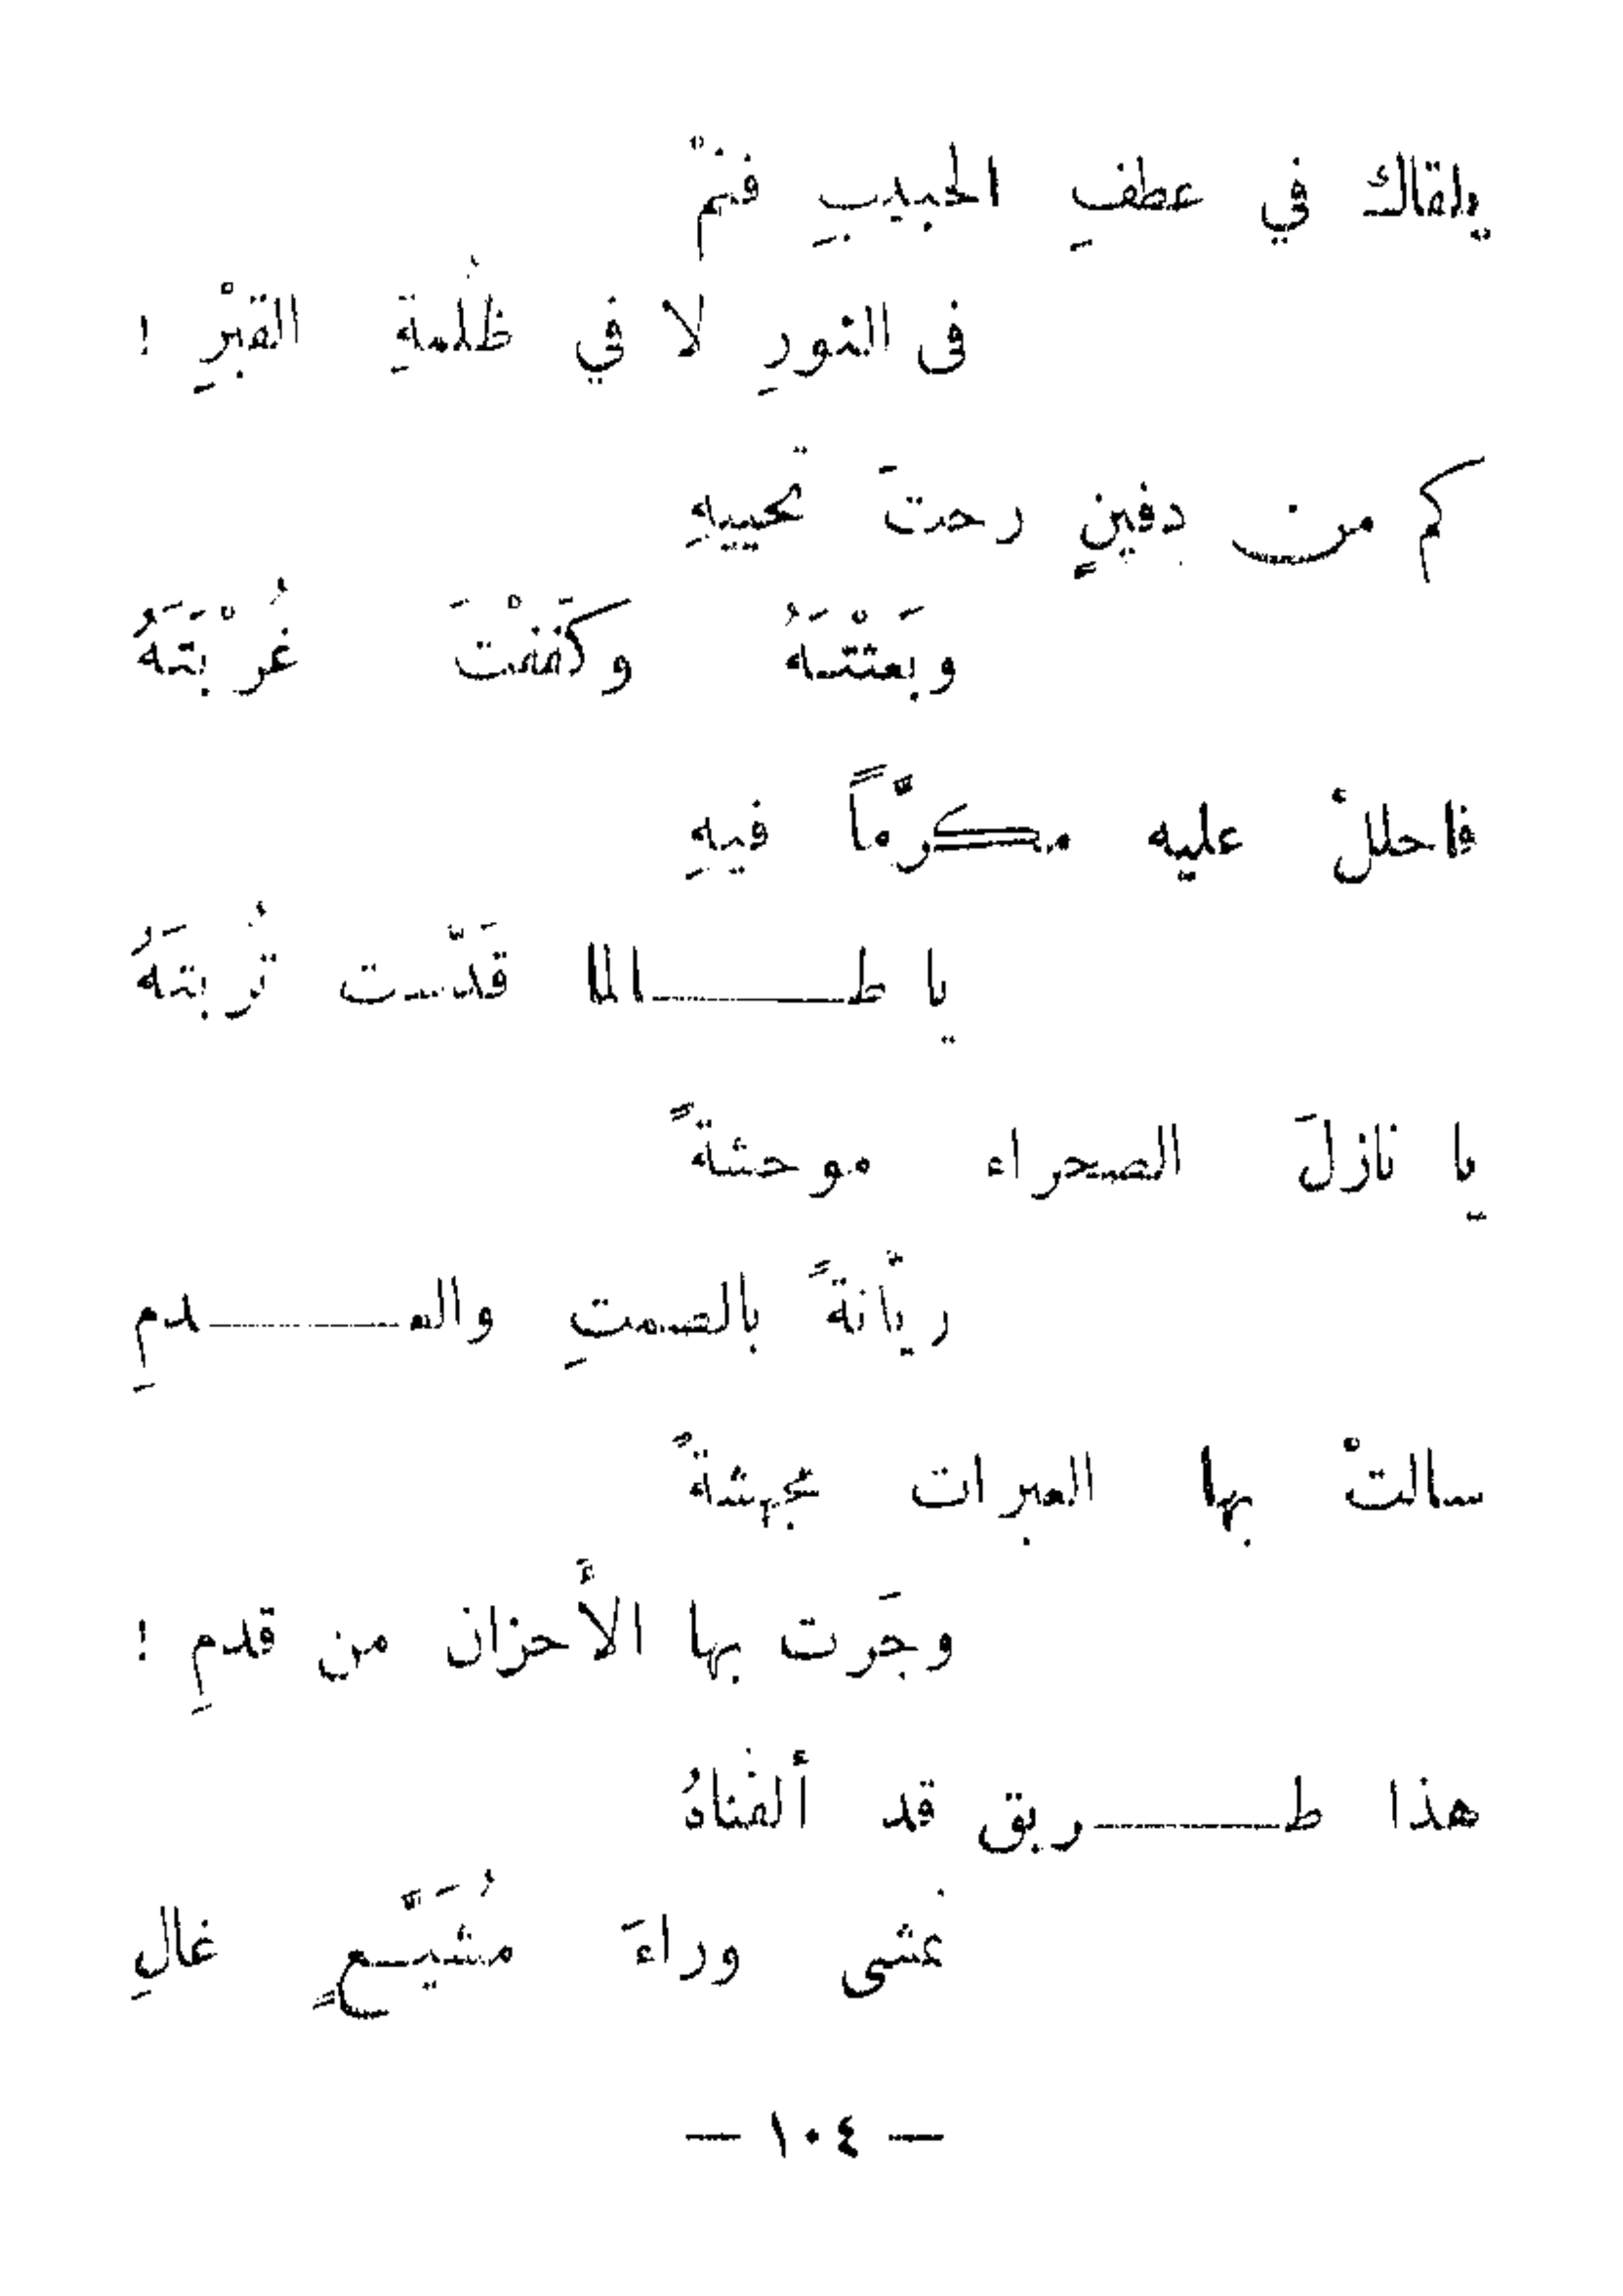 يلقاك في عطفِ الحبيبِ فنمْ
فى النورِ لا في ظُلمةِ القبْرِ !
كم من دفينٍ رحتَ تحييهِ
وبَعثْتَهُ وكفَفْتَ غُرْبَتَهُ
فاحللْ عليه مكرّماً فيهِ
يا طالما قَدّست تُربتَهُ
يا نازلَ الصحراء موحشةً
ريّانةً بالصمتِ والعدمِ
سالتْ بها العبرات مجهشةً
وجَرت بها الأَحزان من قدمِ !
هذا طريق قد ألفناهُ
نمشى وراءَ مُشَيَّعٍ غالِ
— ١٠٤ —